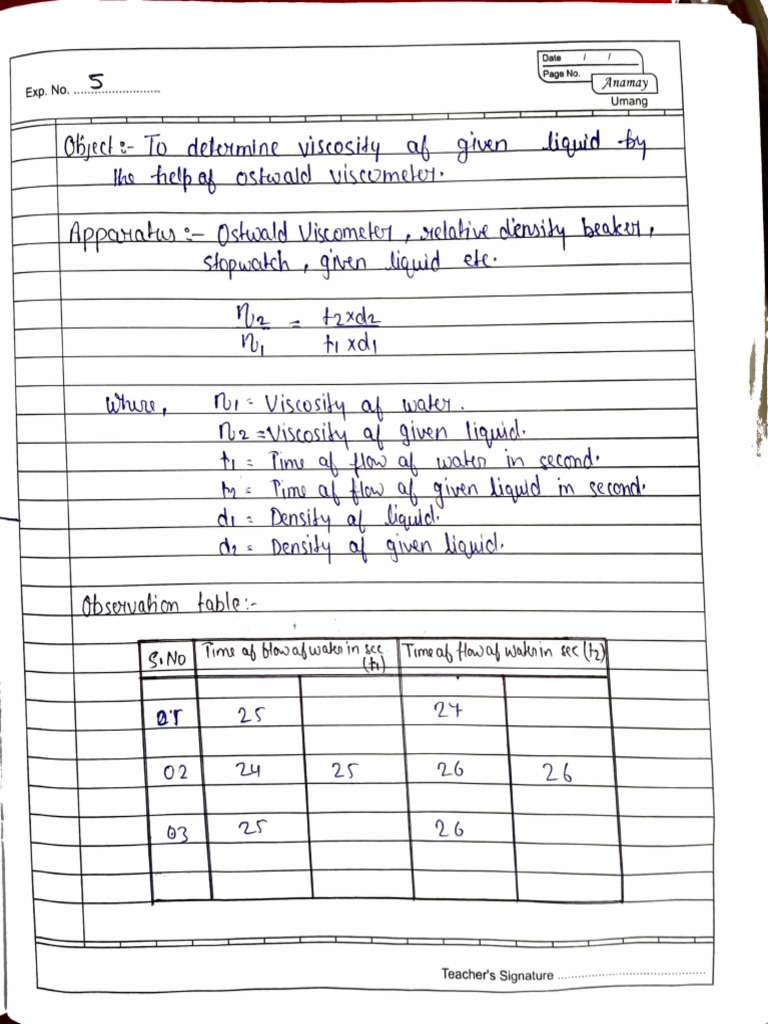 Exp. No. 5
Date / /
Page No.
Anamay
Umang
Object:- To determine viscosity of given liquid by
the help of ostwald viscometer.
Apparatus:- Ostwald Viscometer, relative density beaker,
stopwatch, given liquid etc.
η2/η1 = t2×d2/t1×d1
Where, η1 = Viscosity of water.
η2 = Viscosity of given liquid.
t1 = Time of flow of water in second.
t2 = Time of flow of given liquid in second.
d1 = Density of liquid.
d2 = Density of given liquid.
Observation table:-
S.NO Time of flow of water in sec (t1) Time of flow of water in sec (t2)
01 25 27
02 24 25 26 26
03 25 26
Teacher's Signature